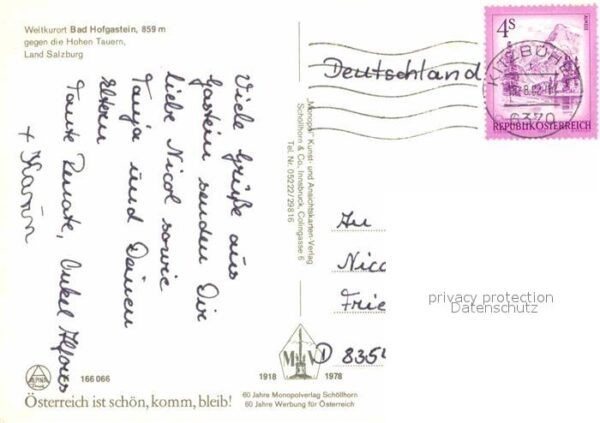 Weltkurort Bad Hofgastein, 859 m
gegen die Hohen Tauern,
Land Salzburg
Viele Grüße aus
Gastein senden Dir
liebe Nicol sowie
Tanja und Deinen
Eltern
Tante Renate, Onkel Alfons
+ Karin
166 066
Österreich ist schön, komm, bleib!
"Monopol" Kunst- und Ansichtskarten-Verlag
Schöllhorn & Co., Innsbruck, Colingasse 6
Tel. Nr. 05222/29816
1918 1978
60 Jahre Monopolverlag Schöllhorn
60 Jahre Werbung für Österreich
Deutschland
4S
REPUBLIK ÖSTERREICH
KITZBÜHEL
6370
An
Nico
Frie
D 8354
privacy protection
Datenschutz